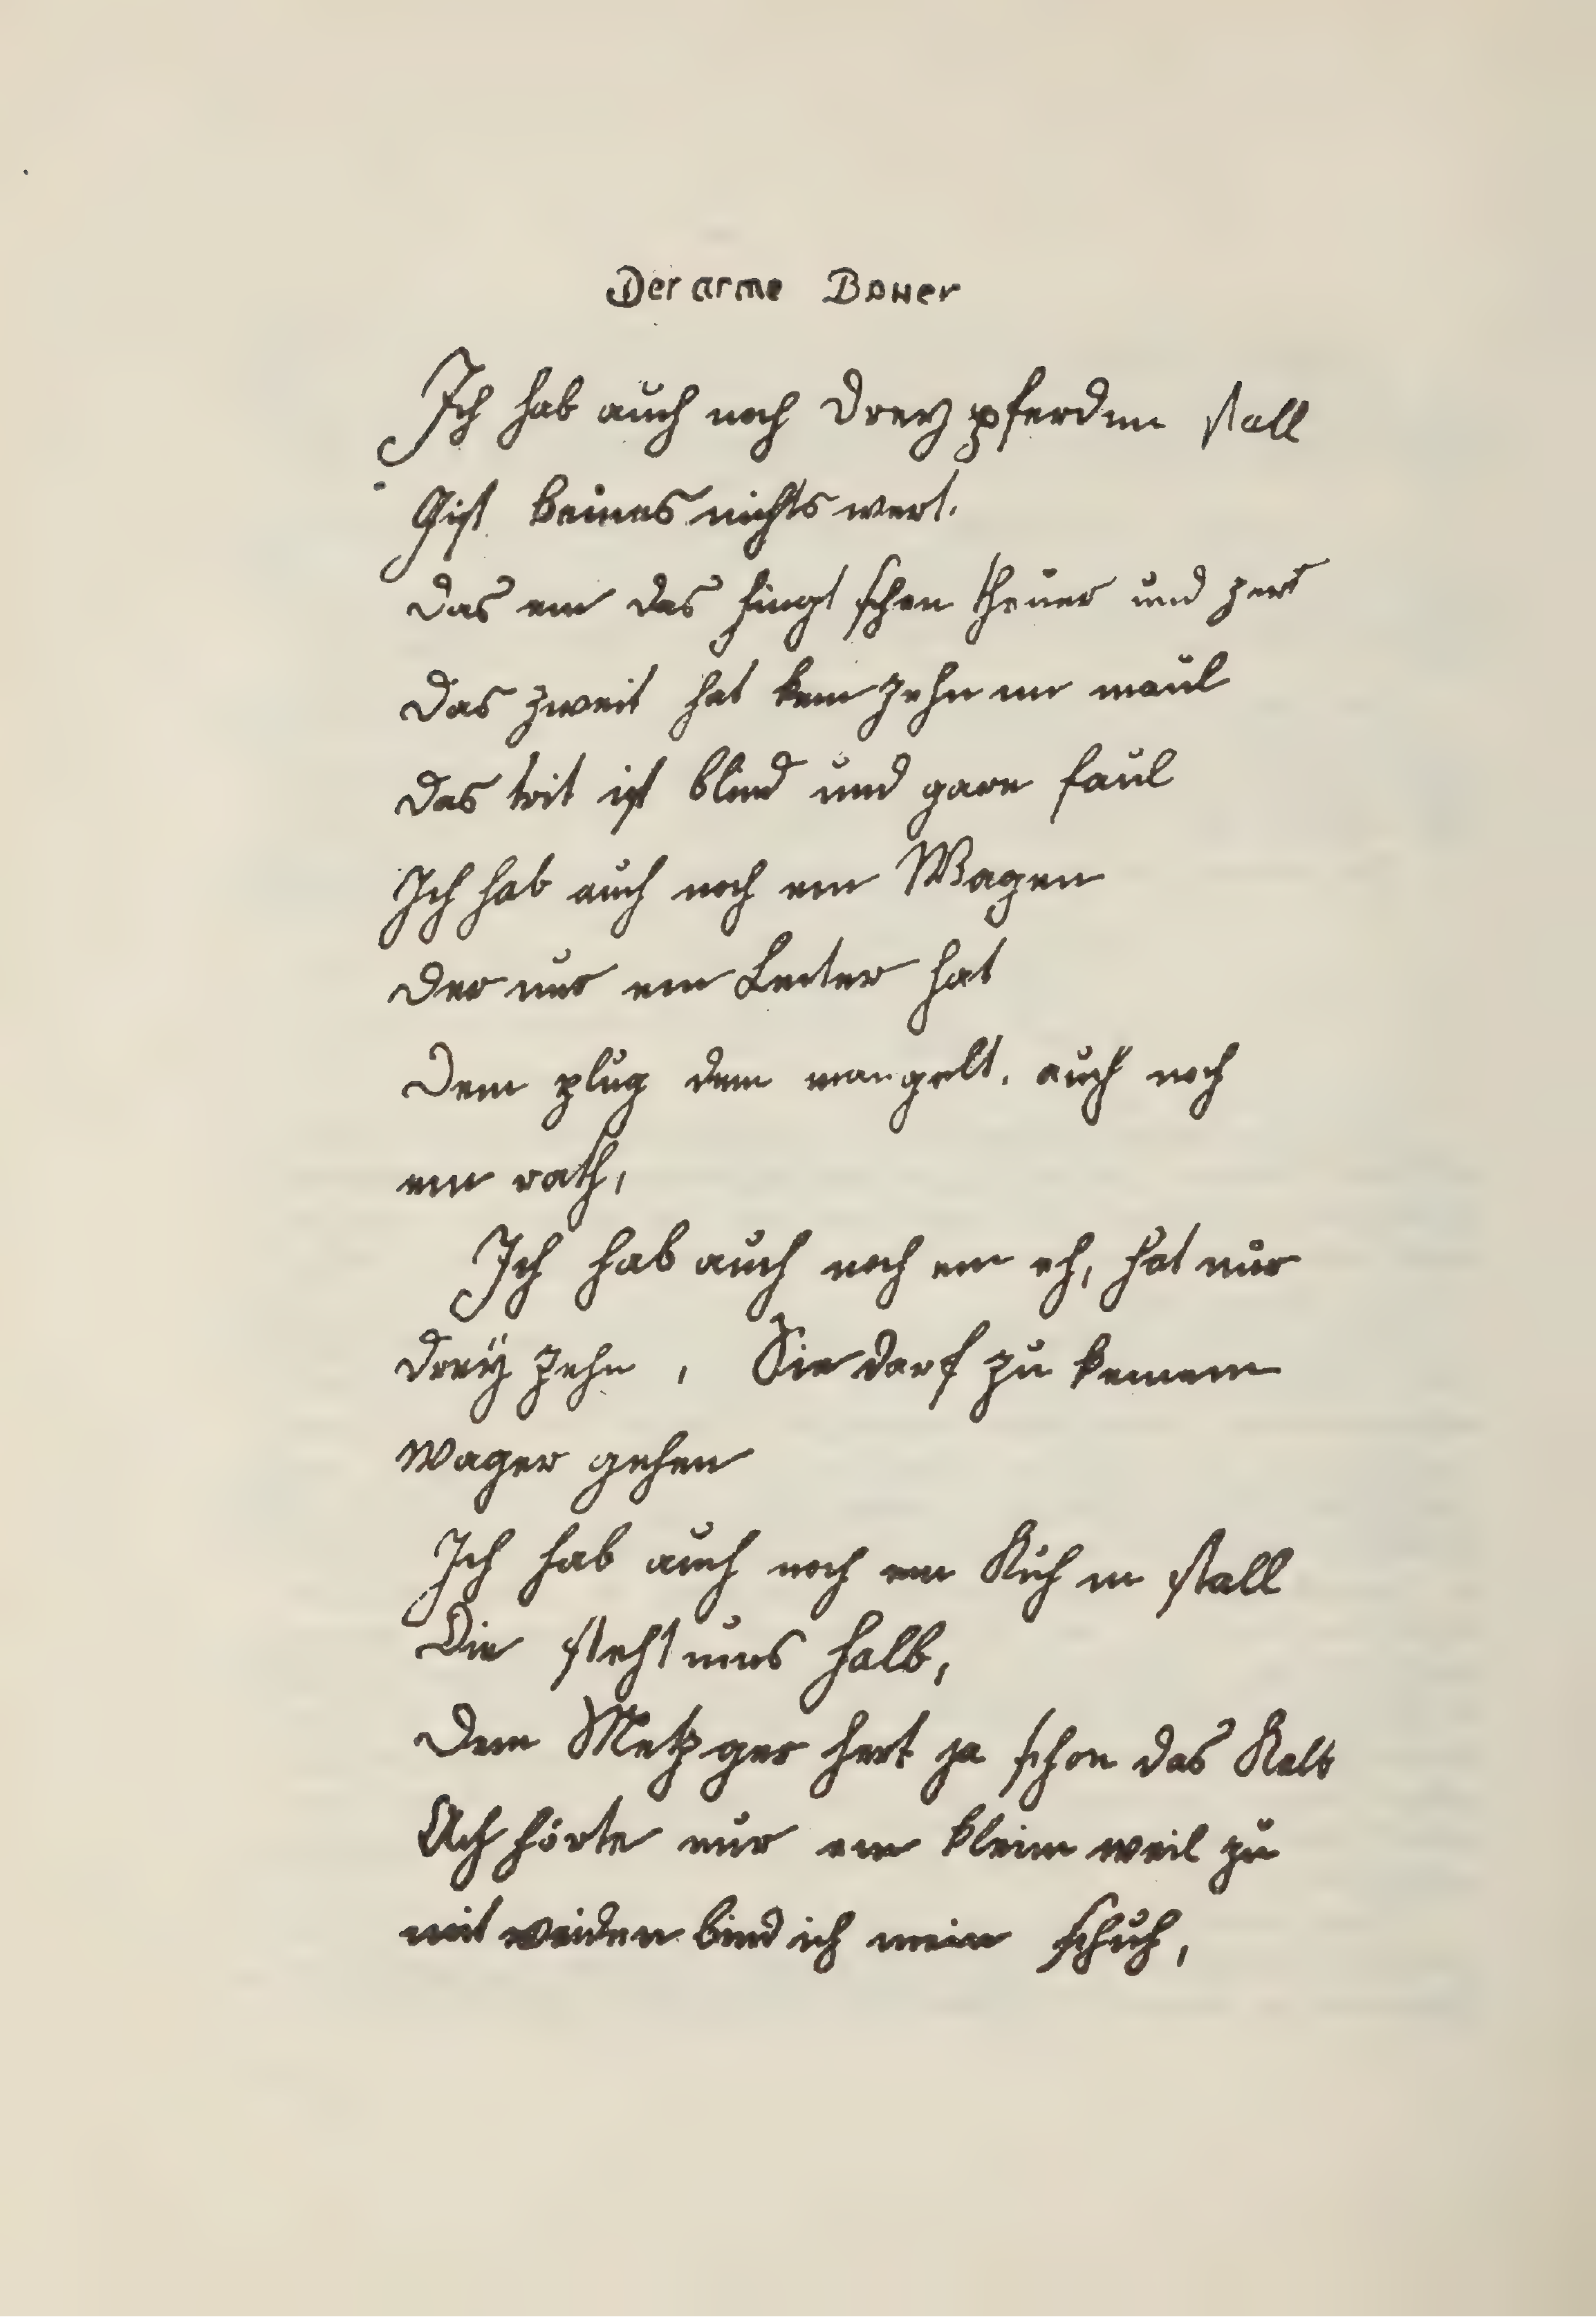 Der arme Bauer
Ich hab auch noch drey pferd im stall
Gist keines nichts wert.
das ein das hingt schon theuer und zert
das zweit hat kein zehn im maul
das trit ist blind und gare faul
Ich hab auch noch ein Wagen
der nur ein Leiter hat
Dem plug dem mangelt. auch noch
ein rath,
Ich hab auch noch ein eh, hat nur
dreÿ zehn, Sie darf zu keinem
wager gehen
Ich hab auch noch ein Kuh im stall
Die steht uns halb,
Dem Metzger hert ja schon das Kalb
Ach hörte nur ein klein weil zu
mit weiden bind ich mein schuh,